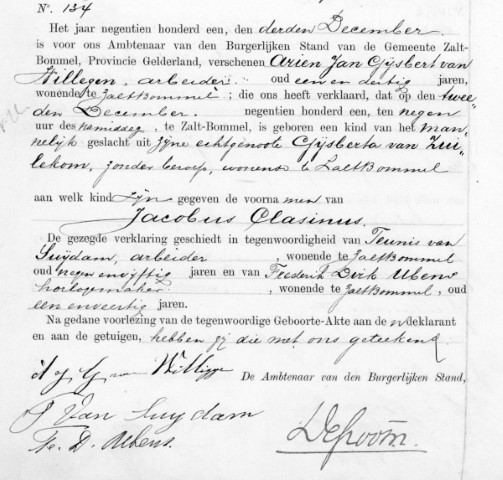 N°. 134
Het jaar negentien honderd een, den derden December
is voor ons Ambtenaar van den Burgerlijken Stand van de Gemeente Zalt-
Bommel, Provincie Gelderland, verschenen Arien Jan Gijsbert van
Willegen, arbeider oud een en dertig jaren,
wonende te Zaltbommel; die ons heeft verklaard, dat op den twee
den December negentien honderd een, ten negen
uur des namiddag, te Zalt-Bommel, is geboren een kind van het man
nelijk geslacht uit zijne echtgenoote Gijsberta van Zui
lekom, zonder beroep, wonende te Zaltbommel
aan welk kind zijn gegeven de voorna men van
Jacobus Clasinus.
De gezegde verklaring geschiedt in tegenwoordigheid van Teunis van
Suydam, arbeider, wonende te Zaltbommel
oud negen en vijftig jaren en van Frederik Dirk Ubens
horlogemaker, wonende te Zaltbommel, oud
een en veertig jaren.
Na gedane voorlezing van de tegenwoordige Geboorte-Akte aan den deklarant
en aan de getuigen, hebben zij die met ons geteekend.
A J G van Willigen
De Ambtenaar van den Burgerlijken Stand,
T Van Suydam
Fr. D. Ubens.